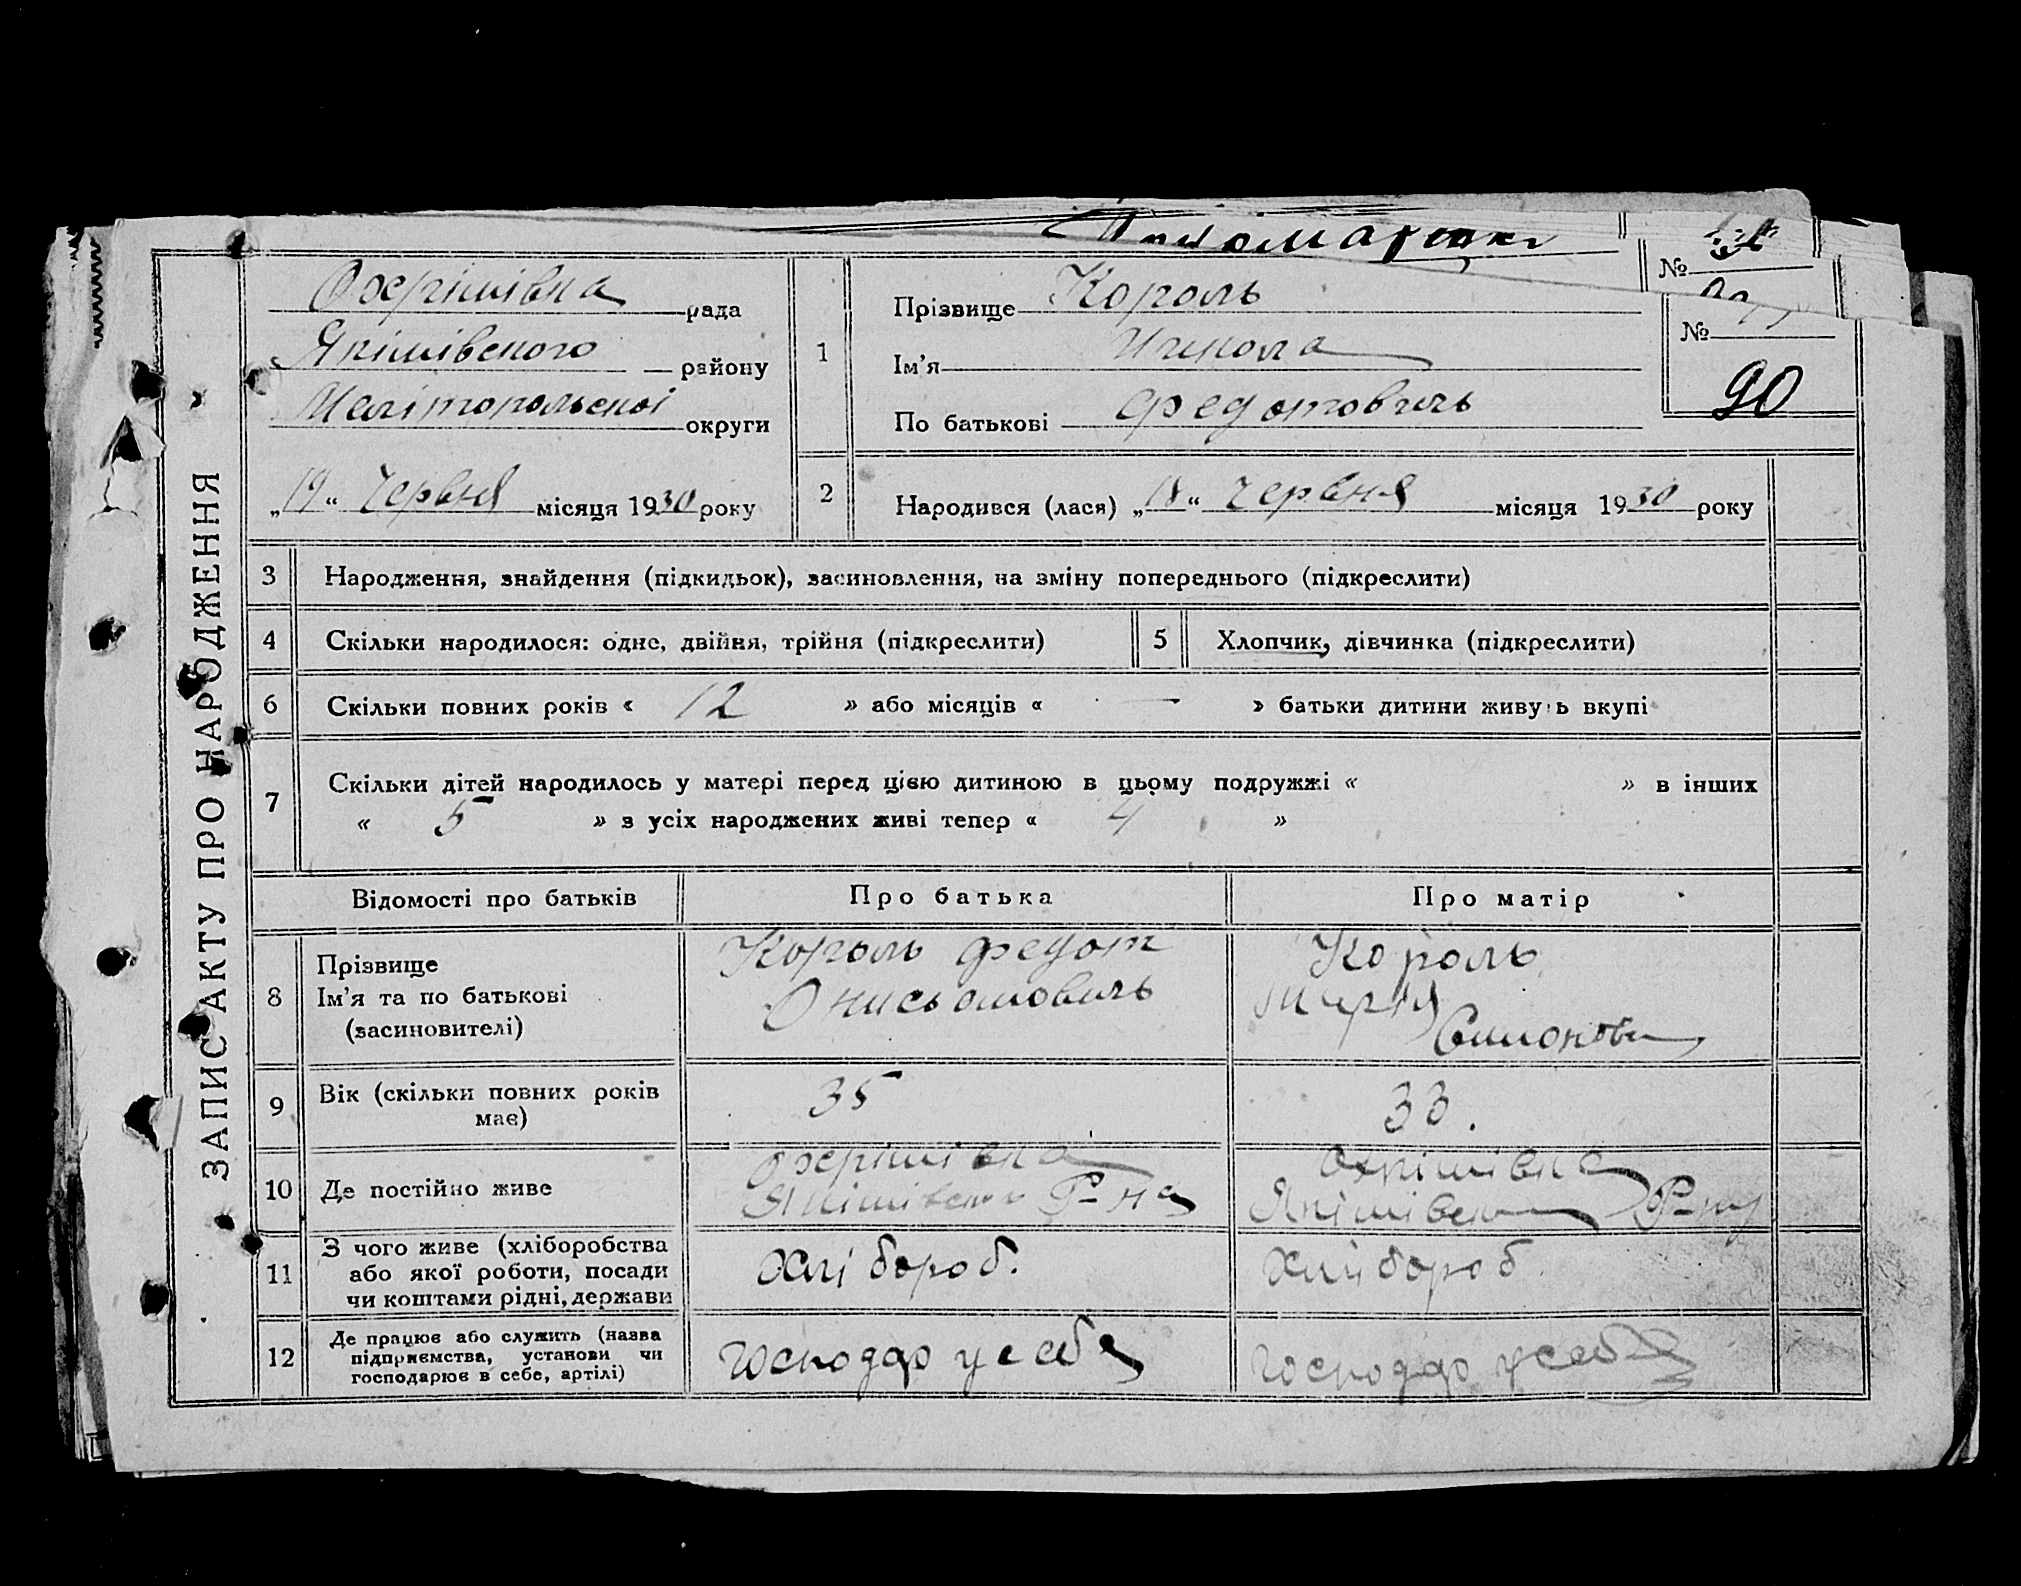 ЗАПИС АКТУ ПРО НАРОДЖЕННЯ
№
Охрімівка рада
Якімівського району
Мелітопольскої округи
„19“ Червня місяця 1930 року
1
Прізвище Король
Ім'я Микола
По батькові Федотовичь
№
90
2
Народився (лася) „18“ Червня місяця 1930 року
3 Народження, знайдення (підкидьок), засиновлення, на зміну попереднього (підкреслити)
4 Скільки народилося: одне, двійня, трійня (підкреслити)
5 Хлопчик, дівчинка (підкреслити)
6 Скільки повних років « 12 » або місяців « — » батьки дитини живуть вкупі
7 Скільки дітей народилось у матері перед цією дитиною в цьому подружжі « » в інших
« 5 » з усіх народжених живі тепер « 4 »
Відомості про батьків Про батька Про матір
8 Прізвище
Ім'я та по батькові
(засиновителі)
Король Федот
Онисьомовичь
Король
Марія
9 Вік (скільки повних років
має)
35
33.
10 Де постійно живе
Охрімівка
Якімівськ Р-на
Охрімівка
Якімівськ Р-ну
11 З чого живе (хліборобства
або якої роботи, посади
чи коштами рідні, держави
Хлібороб.
Хлібороб
12 Де працює або служить (назва
підприємства, установи чи
господарює в себе, артілі)
Господар у себе
Господар у себе